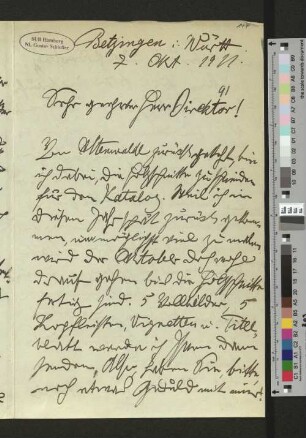 SUB Hamburg
NL Gustav Schiefler
Betzingen i. Württ
2. Okt. 1911.
91
Sehr geehrter Herr Direktor!
Von zurückgekehrt, bin
ich dabei, die Holzschnitte zu schneiden
für den Katalog. Weil ich in
diesem Jahr spät zurück gekom-
men, um möglichst viel zu malen
wird der Oktober doch wohl
drauf gehen bis die Holzschnitte
fertig sind. 5 Vollbilder 5
Kopfleisten, Vignetten u. Titel-
blatt werden ich Ihnen dann
senden, Also, haben Sie, bitte
noch etwas Geduld mit mir.